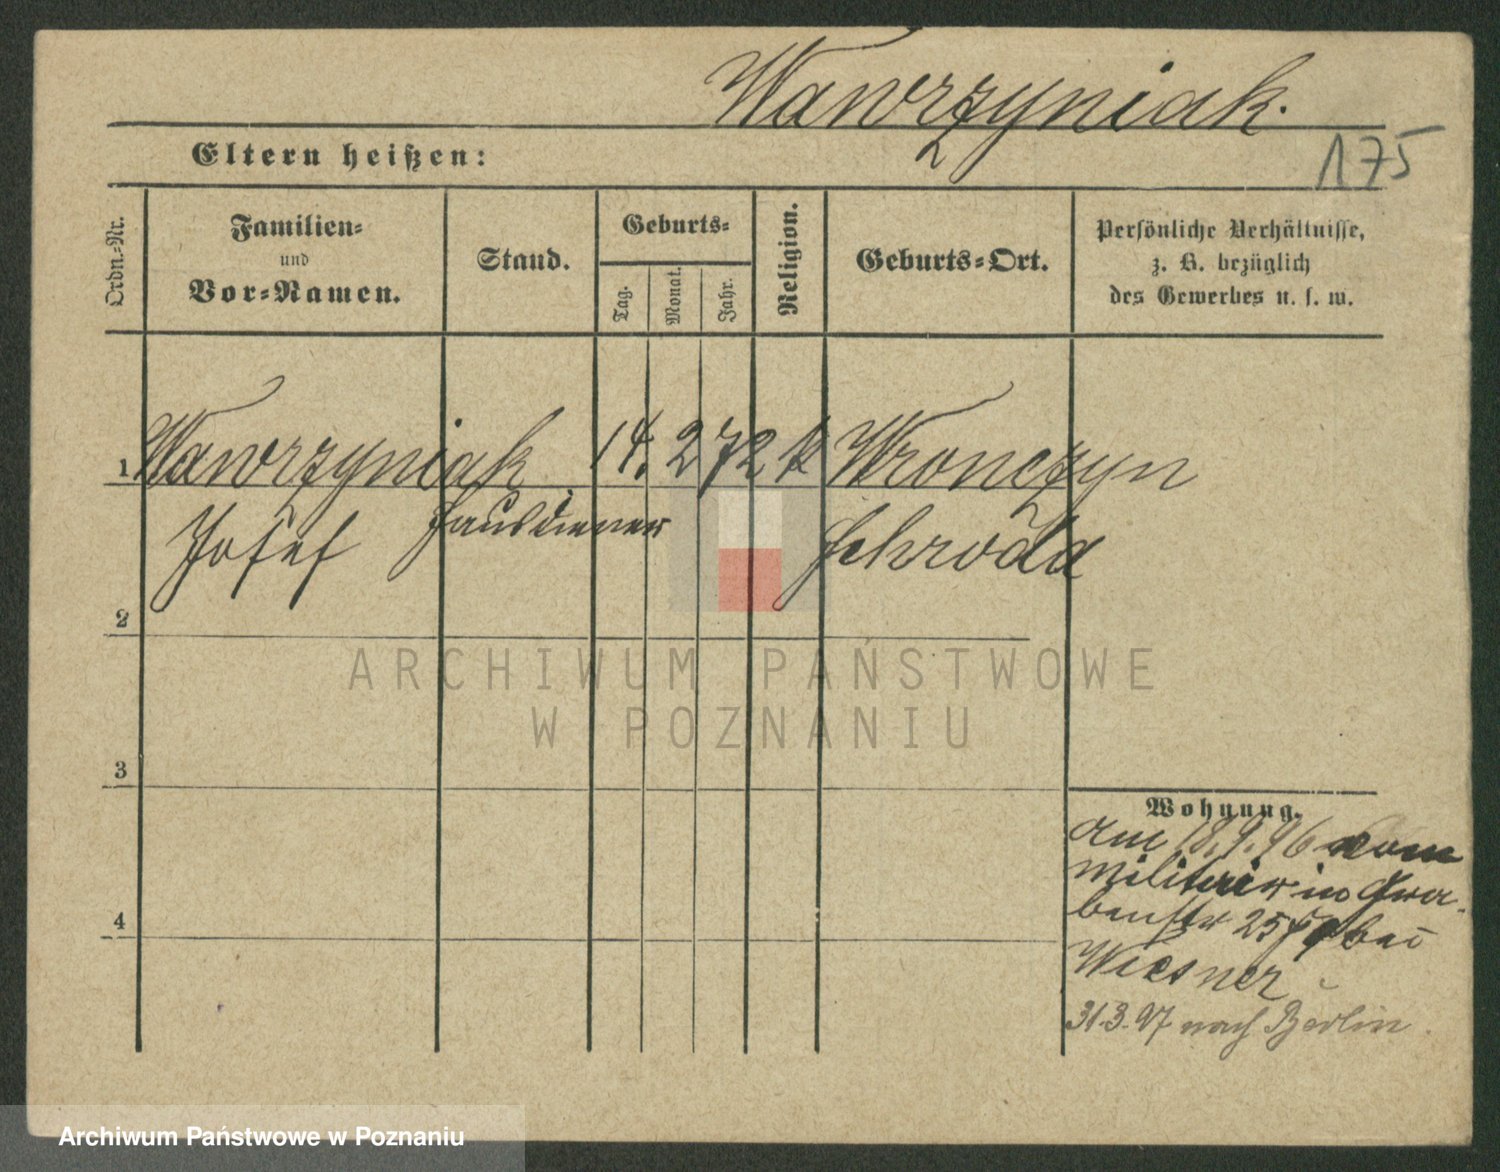 Wawrzyniak.
175
Eltern heißen:
Ordn.-Nr.
Familien-
und
Vor-Namen.
Stand.
Geburts-
Tag.
Monat.
Jahr.
Religion.
Geburts-Ort.
Persönliche Verhältnisse,
z. B. bezüglich
des Gewerbes u. s. w.
1 Wawrzyniak 14. 2 72 k Wronczyn
Josef Hausdiener Schroda
2
3
4
Wohnung.
am 18.9.96 vom
Militair in Gra-
benstr 25 bei
Wiesner
31.3.97 nach Berlin.
ARCHIWUM PAŃSTWOWE
W POZNANIU
Archiwum Państwowe w Poznaniu